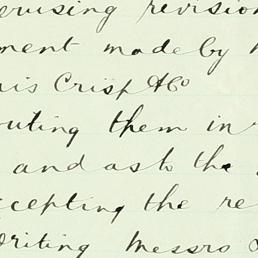 erusing revision
ment made by
is Crisp &Co
uting them in
and as to the
ccepting the re
riting Messrs